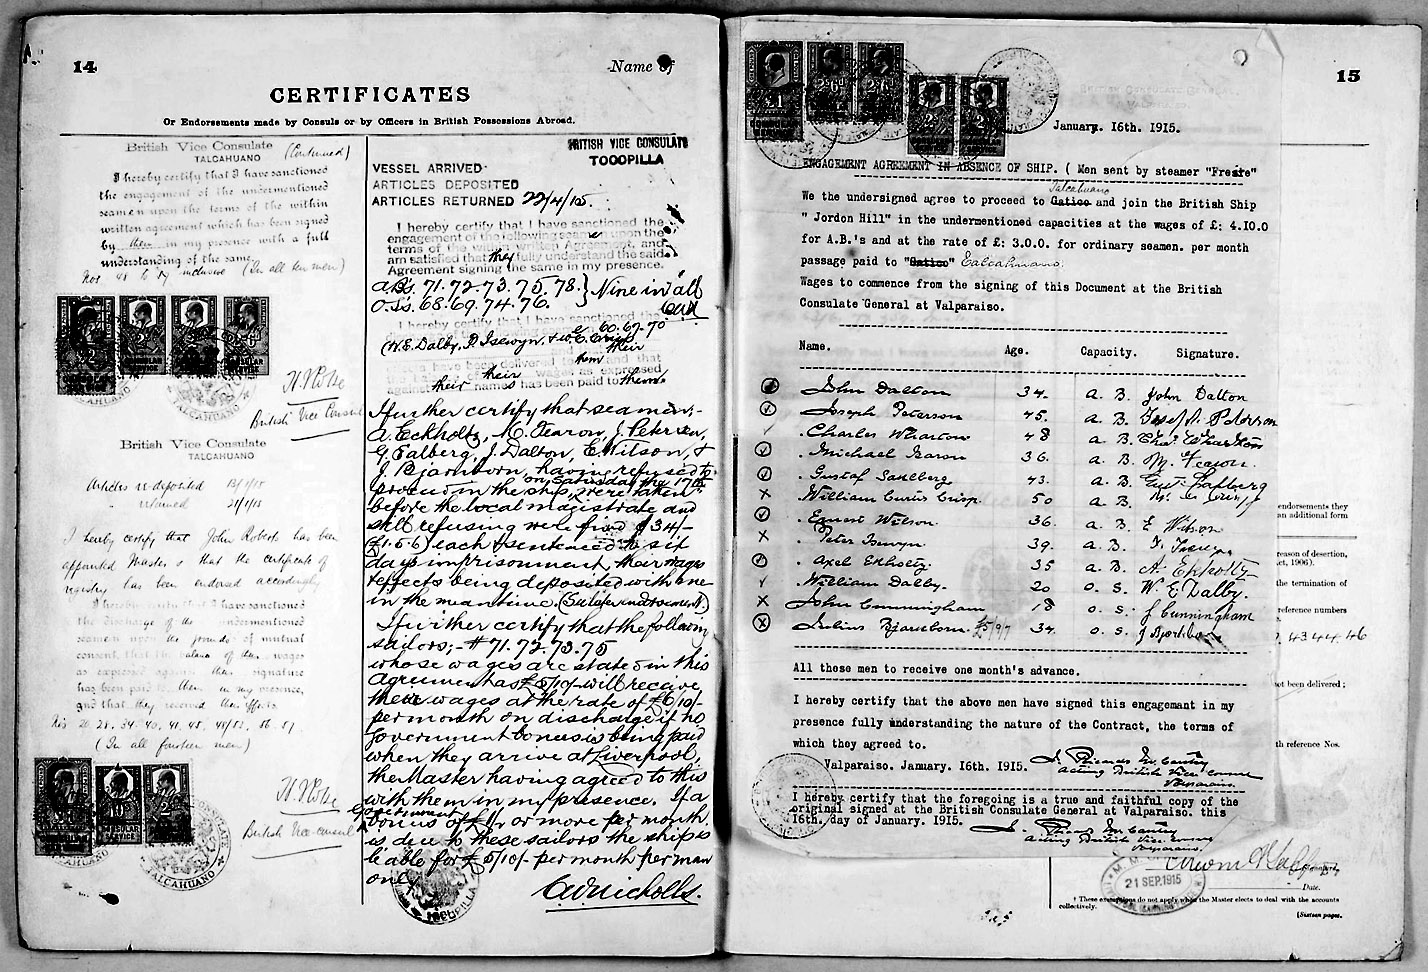 14
Name of
CERTIFICATES
Or Endorsements made by Consuls or by Officers in British Possessions Abroad.
British Vice Consulate
TALCAHUANO
(Continued)
I hereby certify that I have sanctioned
the engagement of the undermentioned
seamen upon the terms of the within
written agreement which has been signed
by them in my presence with a full
understanding of the same
Nos 48 to 57 inclusive (In all ten men)
TALCAHUANO
British Vice Consul
British Vice Consulate
TALCAHUANO
Articles re-deposited 13/1/15
" returned 21/1/15
I hereby certify that John Roberts has been
appointed Master & that the certificate of
registry has been endorsed accordingly
I hereby certify that I have sanctioned
the discharge of the undermentioned
seamen upon the grounds of mutual
consent, that the balance of their wages
as expressed against their signature
has been paid to them in my presence,
and that they received their effects.
(In all fourteen men)
British Vice-consul
TALCAHUANO
BRITISH VICE CONSULATE
TOCOPILLA
VESSEL ARRIVED
ARTICLES DEPOSITED
ARTICLES RETURNED 22/4/15.
I hereby certify that I have sanctioned the
engagement of the following seamen upon the
terms of the within written Agreement, and
am satisfied that they fully understand the said
Agreement signing the same in my presence.
A.B's. 71. 72. 73. 75. 78. } Nine in all
O.S's. 68. 69. 74. 76.
I hereby certify that I have sanctioned the
60. 67. 70
(W. E. Dalby, P. Isewyn, & W. C. Crisp
their
them
their
their names has been paid to them
I further certify that seamen:-
A. Eckholtz, M. Fearon, J. Petersen,
G. Salberg, J. Dalton, E. Wilson, &
J. Bjornborn, having refused to
proceed in the ship, on Saturday the 17th were taken
before the local magistrate and
still refusing were fined $34/-
(£1. 5. 6) each & sentenced to six
days imprisonment, their wages
& effects being deposited with me
in the meantime. (See later endorsement.)
I further certify that the following
sailors:- # 71. 72. 73. 75
whose wages are stated in this
agreement as £5/10/- will receive
their wages at the rate of £6/10/-
per month on discharge if no
Government bonus is being paid
when they arrive at Liverpool,
the Master having agreed to this
with them in my presence. If a
Government bonus of £1/- or more per month
is due to these sailors the ship is
liable for £5/10/- per month per man
only.
C. W. Nicholls.
TOCOPILLA
15
January. 16th. 1915.
ENGAGEMENT AGREEMENT IN ABSENCE OF SHIP. ( Men sent by steamer "Freire"
Talcahuano
We the undersigned agree to proceed to Gatico and join the British Ship
" Jordon Hill" in the undermentioned capacities at the wages of £: 4.10.0
for A.B.'s and at the rate of £: 3.0.0. for ordinary seamen. per month
passage paid to "Gatico" Talcahuano.
Wages to commence from the signing of this Document at the British
Consulate General at Valparaiso.
Name. Age. Capacity. Signature.
John Dalton 34. A. B. John Dalton
Joseph Peterson 45. A. B. Josef A. Peterson
Charles Wharton 48 A. B. Chas Wharton
Michael Fearon 36. A. B. M. Fearon.
Gustaf Sahlberg 43. A. B. Gust Salberg
William Curtis Crisp. 50 A. B.
Ernest Wilson 36. A. B. E Wilson
Peter Isewyn 39. A. B. P. Isewyn
Axel Ekholtz 35 A. B. A. Ekholtz
William Dalby. 20 O. S. W. E. Dalby.
John Cunningham 18 O. S. J Cunningham
Julius Bjornborn 34. O. S.
All these men to receive one month's advance.
I hereby certify that the above men have signed this engagement in my
presence fully understanding the nature of the Contract, the terms of
which they agreed to.
Valparaiso. January. 16th. 1915.
Acting British Vice Consul
Valparaiso.
I hereby certify that the foregoing is a true and faithful copy of the
original signed at the British Consulate General at Valparaiso. this
16th. day of January. 1915.
Acting British Vice Consul
Valparaiso.
endorsements they
an additional form
reason of desertion,
Act, 1906).
the termination of
reference numbers
43 44. 46
not been delivered ;
th reference Nos.
21 SEP.1915
Date.
† These exceptions do not apply when the Master elects to deal with the accounts
collectively.
[Sixteen pages.